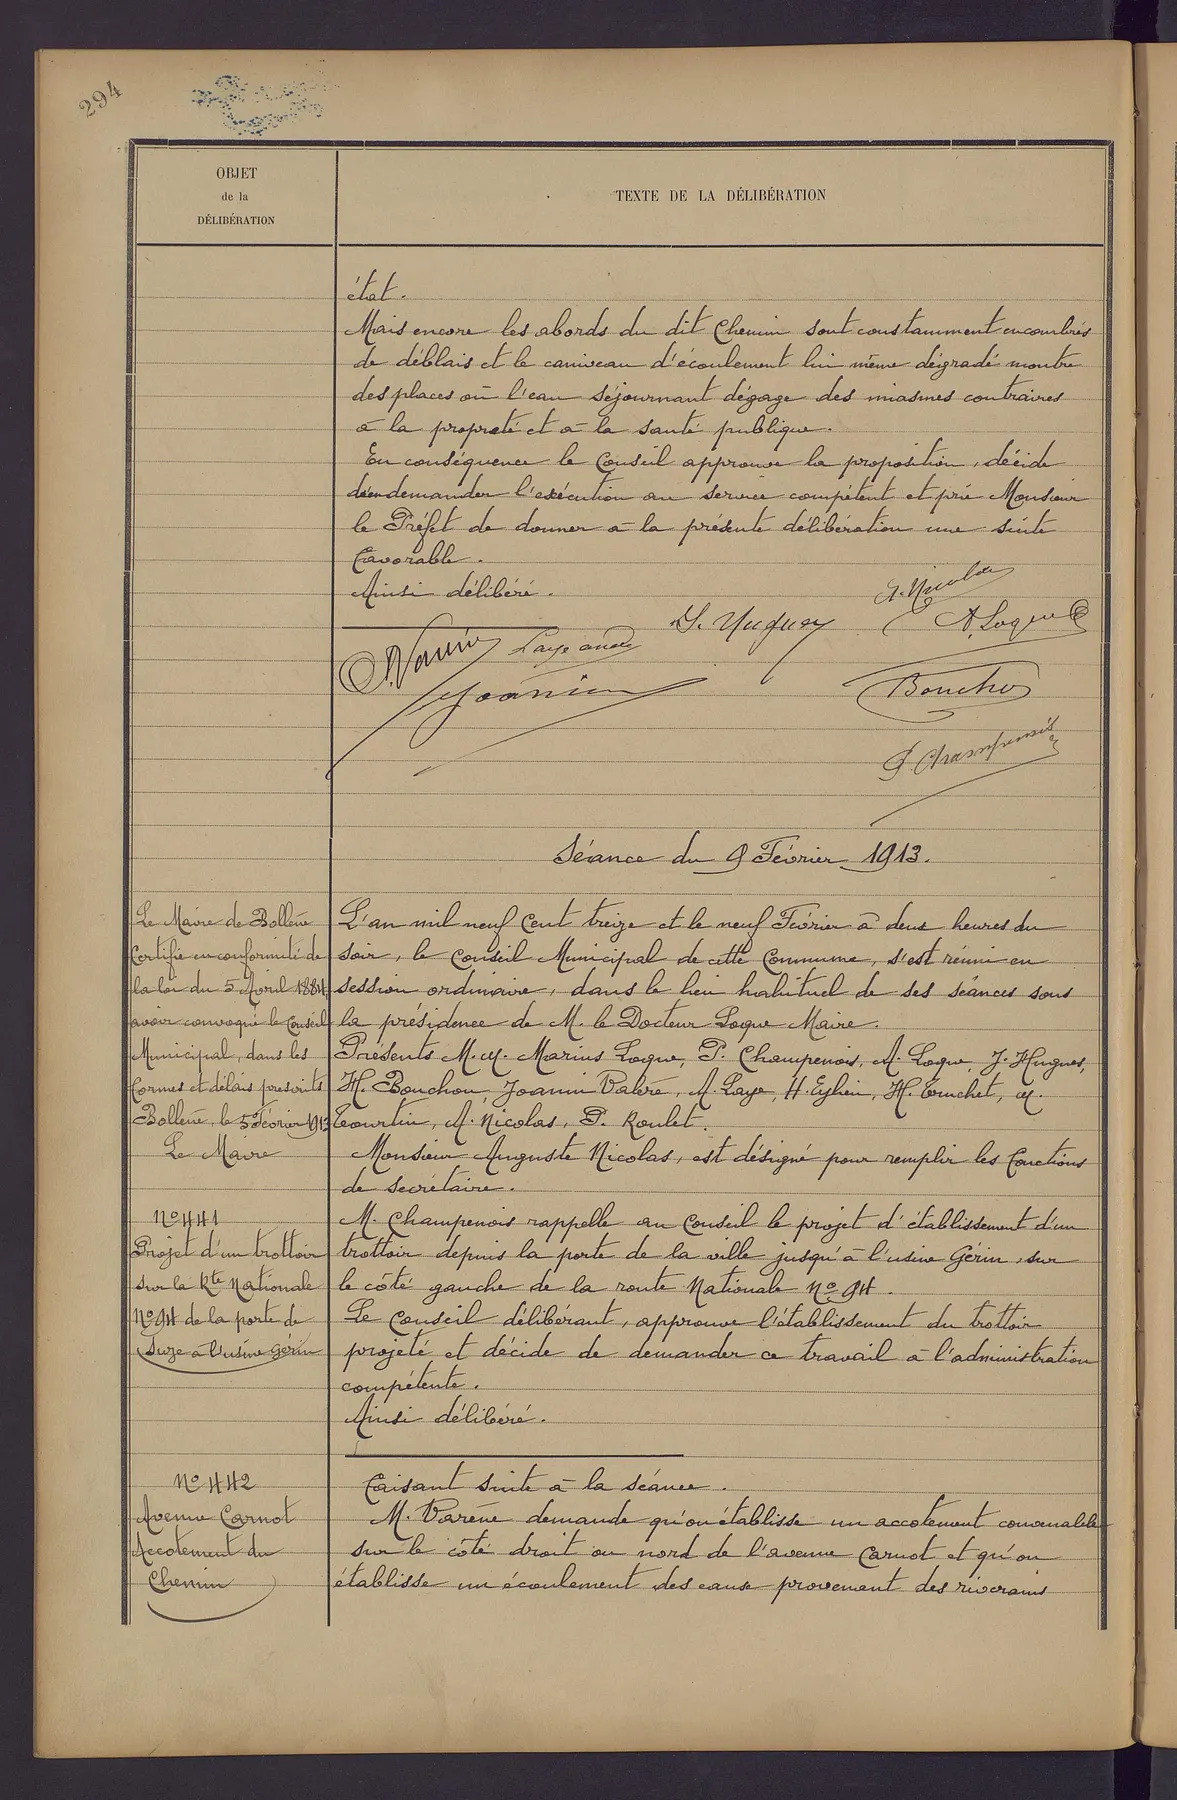 294
OBJET
de la
DÉLIBÉRATION
TEXTE DE LA DÉLIBÉRATION
état.
Mais encore les abords du dit Chemin sont constamment encombrés
de déblais et le caniveau d'écoulement lui même dégradé montre
des places où l'eau séjournant dégage des miasmes contraires
à la propreté et à la santé publique.
En conséquence le Conseil approuve la proposition, décide
d'en demander l'exécution au service compétent et prie Monsieur
le Préfet de donner à la présente délibération une suite
favorable.
Ainsi délibéré.
A. Nicolas
J. Hugues
A. Loque
Laye André
Joanin
Bouchon
P. Champenois
Séance du 9 Février 1913.
Le Maire de Bollène
Certifie en conformité de
la loi du 5 Avril 1884,
avoir convoqué le Conseil
Municipal, dans les
formes et délais prescrits
Bollène, le 5 Février 1913
Le Maire
L'an mil neuf Cent treize et le neuf Février à deux heures du
soir, le Conseil Municipal de cette Commune, s'est réuni en
session ordinaire, dans le lieu habituel de ses séances sous
la présidence de M. le Docteur Loque Maire.
Présents M.M. Marius Loque, P. Champenois, A. Loque, J. Hugues,
H. Bouchon, Joanin Valère, A. Laye, H. Eylien, H. Truchet, M.
Tourtin, A. Nicolas, P. Roulet.
Monsieur Auguste Nicolas, est désigné pour remplir les fonctions
de secrétaire.
No 441
Projet d'un trottoir
sur la Rte Nationale
No 94 de la porte de
Suze à l'usine Gérin
M. Champenois rappelle au Conseil le projet d'établissement d'un
trottoir depuis la porte de la ville jusqu'à l'usine Gérin, sur
le côté gauche de la route Nationale No 94.
Le Conseil délibérant, approuve l'établissement du trottoir
projeté et décide de demander ce travail à l'administration
compétente.
Ainsi délibéré.
No 442
Avenue Carnot
Accotement du
Chemin
Faisant suite à la séance.
M. Varène demande qu'on établisse un accotement convenable
sur le côté droit ou nord de l'avenue Carnot et qu'on
établisse un écoulement des eaux provenant des riverains